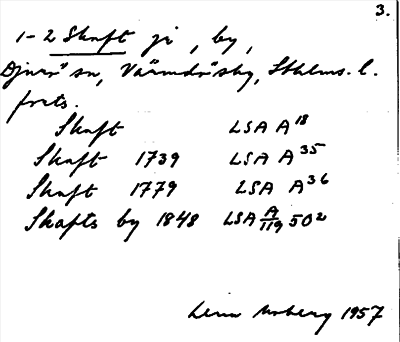 3.
1-2 Skaft je, by,
Djurö sn, Värmdö sky, Sthlms. l.
forts.
Skaft LSA A18
Skaft 1739 LSA A35
Skaft 1779 LSA A36
Skafts by 1848 LSA A/119 502
Moberg 1957